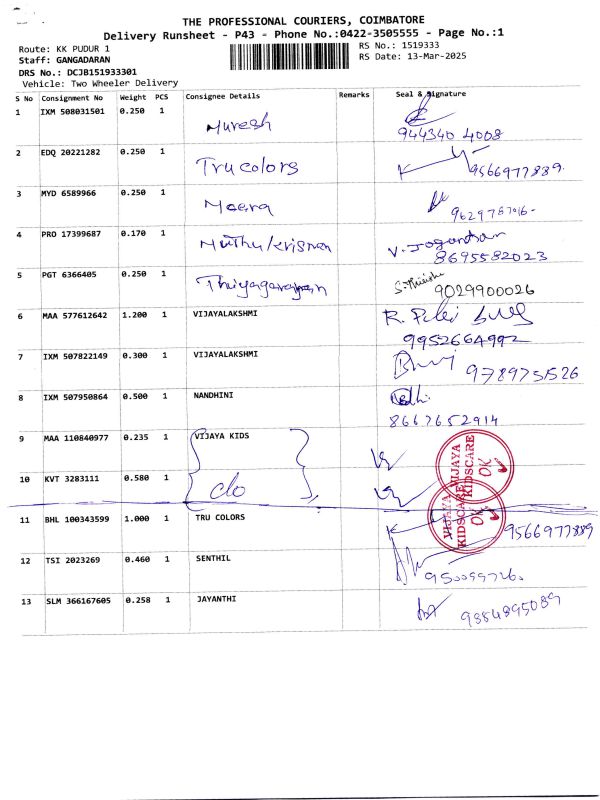 THE PROFESSIONAL COURIERS, COIMBATORE
Delivery Runsheet - P43 - Phone No.:0422-3505555 - Page No.:1
Route: KK PUDUR 1
RS No.: 1519333
Staff: GANGADARAN
RS Date: 13-Mar-2025
DRS No.: DCJB151933301
Vehicle: Two Wheeler Delivery
S No Consignment No Weight PCS Consignee Details Remarks Seal & Signature
1 IXM 508031501 0.250 1
944340 4008
2 EDQ 20221282 0.250 1 Tru colors 9566977889.
3 MYD 6589966 0.250 1 Meera
4 PRO 17399687 0.170 1 Muthu krisnan V. Jogandran
8695582023
5 PGT 6366405 0.250 1 Thiyagarajan 9029900026
6 MAA 577612642 1.200 1 VIJAYALAKSHMI
9952664992
7 IXM 507822149 0.300 1 VIJAYALAKSHMI
9789751526
8 IXM 507950864 0.500 1 NANDHINI
8667652914
9 MAA 110840977 0.235 1 VIJAYA KIDS
VIJAYA KIDSCARE OK
10 KVT 3283111 0.580 1 c/o
VIJAYA KIDSCARE OK
11 BHL 100343599 1.000 1 TRU COLORS 9566977889
12 TSI 2023269 0.460 1 SENTHIL
13 SLM 366167605 0.258 1 JAYANTHI 9884895089